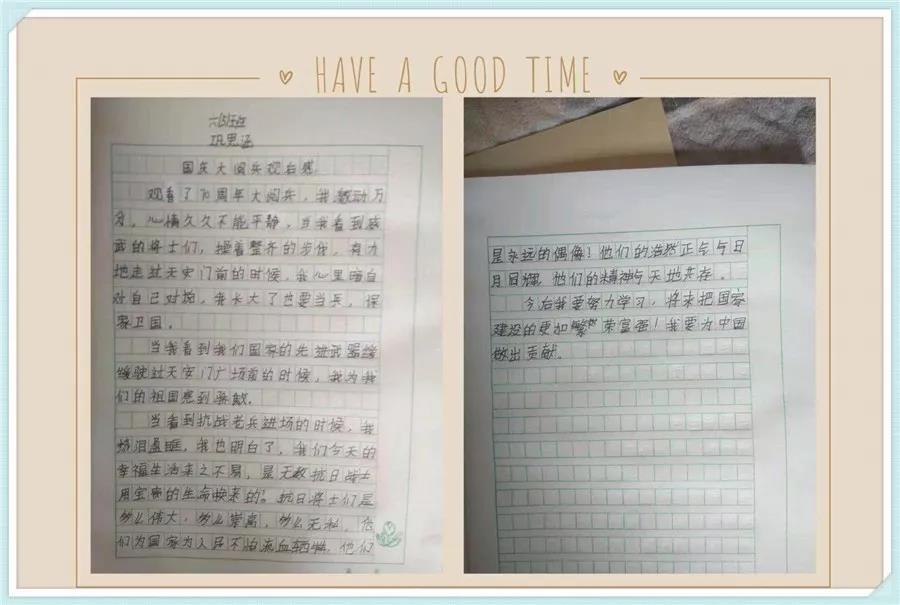 HAVE A GOOD TIME
六班
巩思涵
国庆大阅兵观后感
观看了70周年大阅兵，我激动万
分，心情久久不能平静，当我看到威
武的将士们，操着整齐的步伐，有力
地走过天安门前的时候，我心里暗自
对自己对说，我长大了也要当兵，保
家卫国。
当我看到我们国家的先进武器缓
缓驶过天安门广场前的时候，我为我
们的祖国感到骄傲。
当看到抗战老兵进场的时候，我
热泪盈眶，我也明白了，我们今天的
幸福生活来之不易，是无数抗日战士
用宝贵的生命换来的。抗日将士们是
多么伟大，多么崇高，多么无私，他
们为国家为人民不怕流血牺牲，他们
是永远的偶像！他们的浩然正气与日
月同辉，他们的精神与天地共存。
今后我要努力学习，将来把国家
建设的更加繁荣富强！我要为中国
做出贡献。